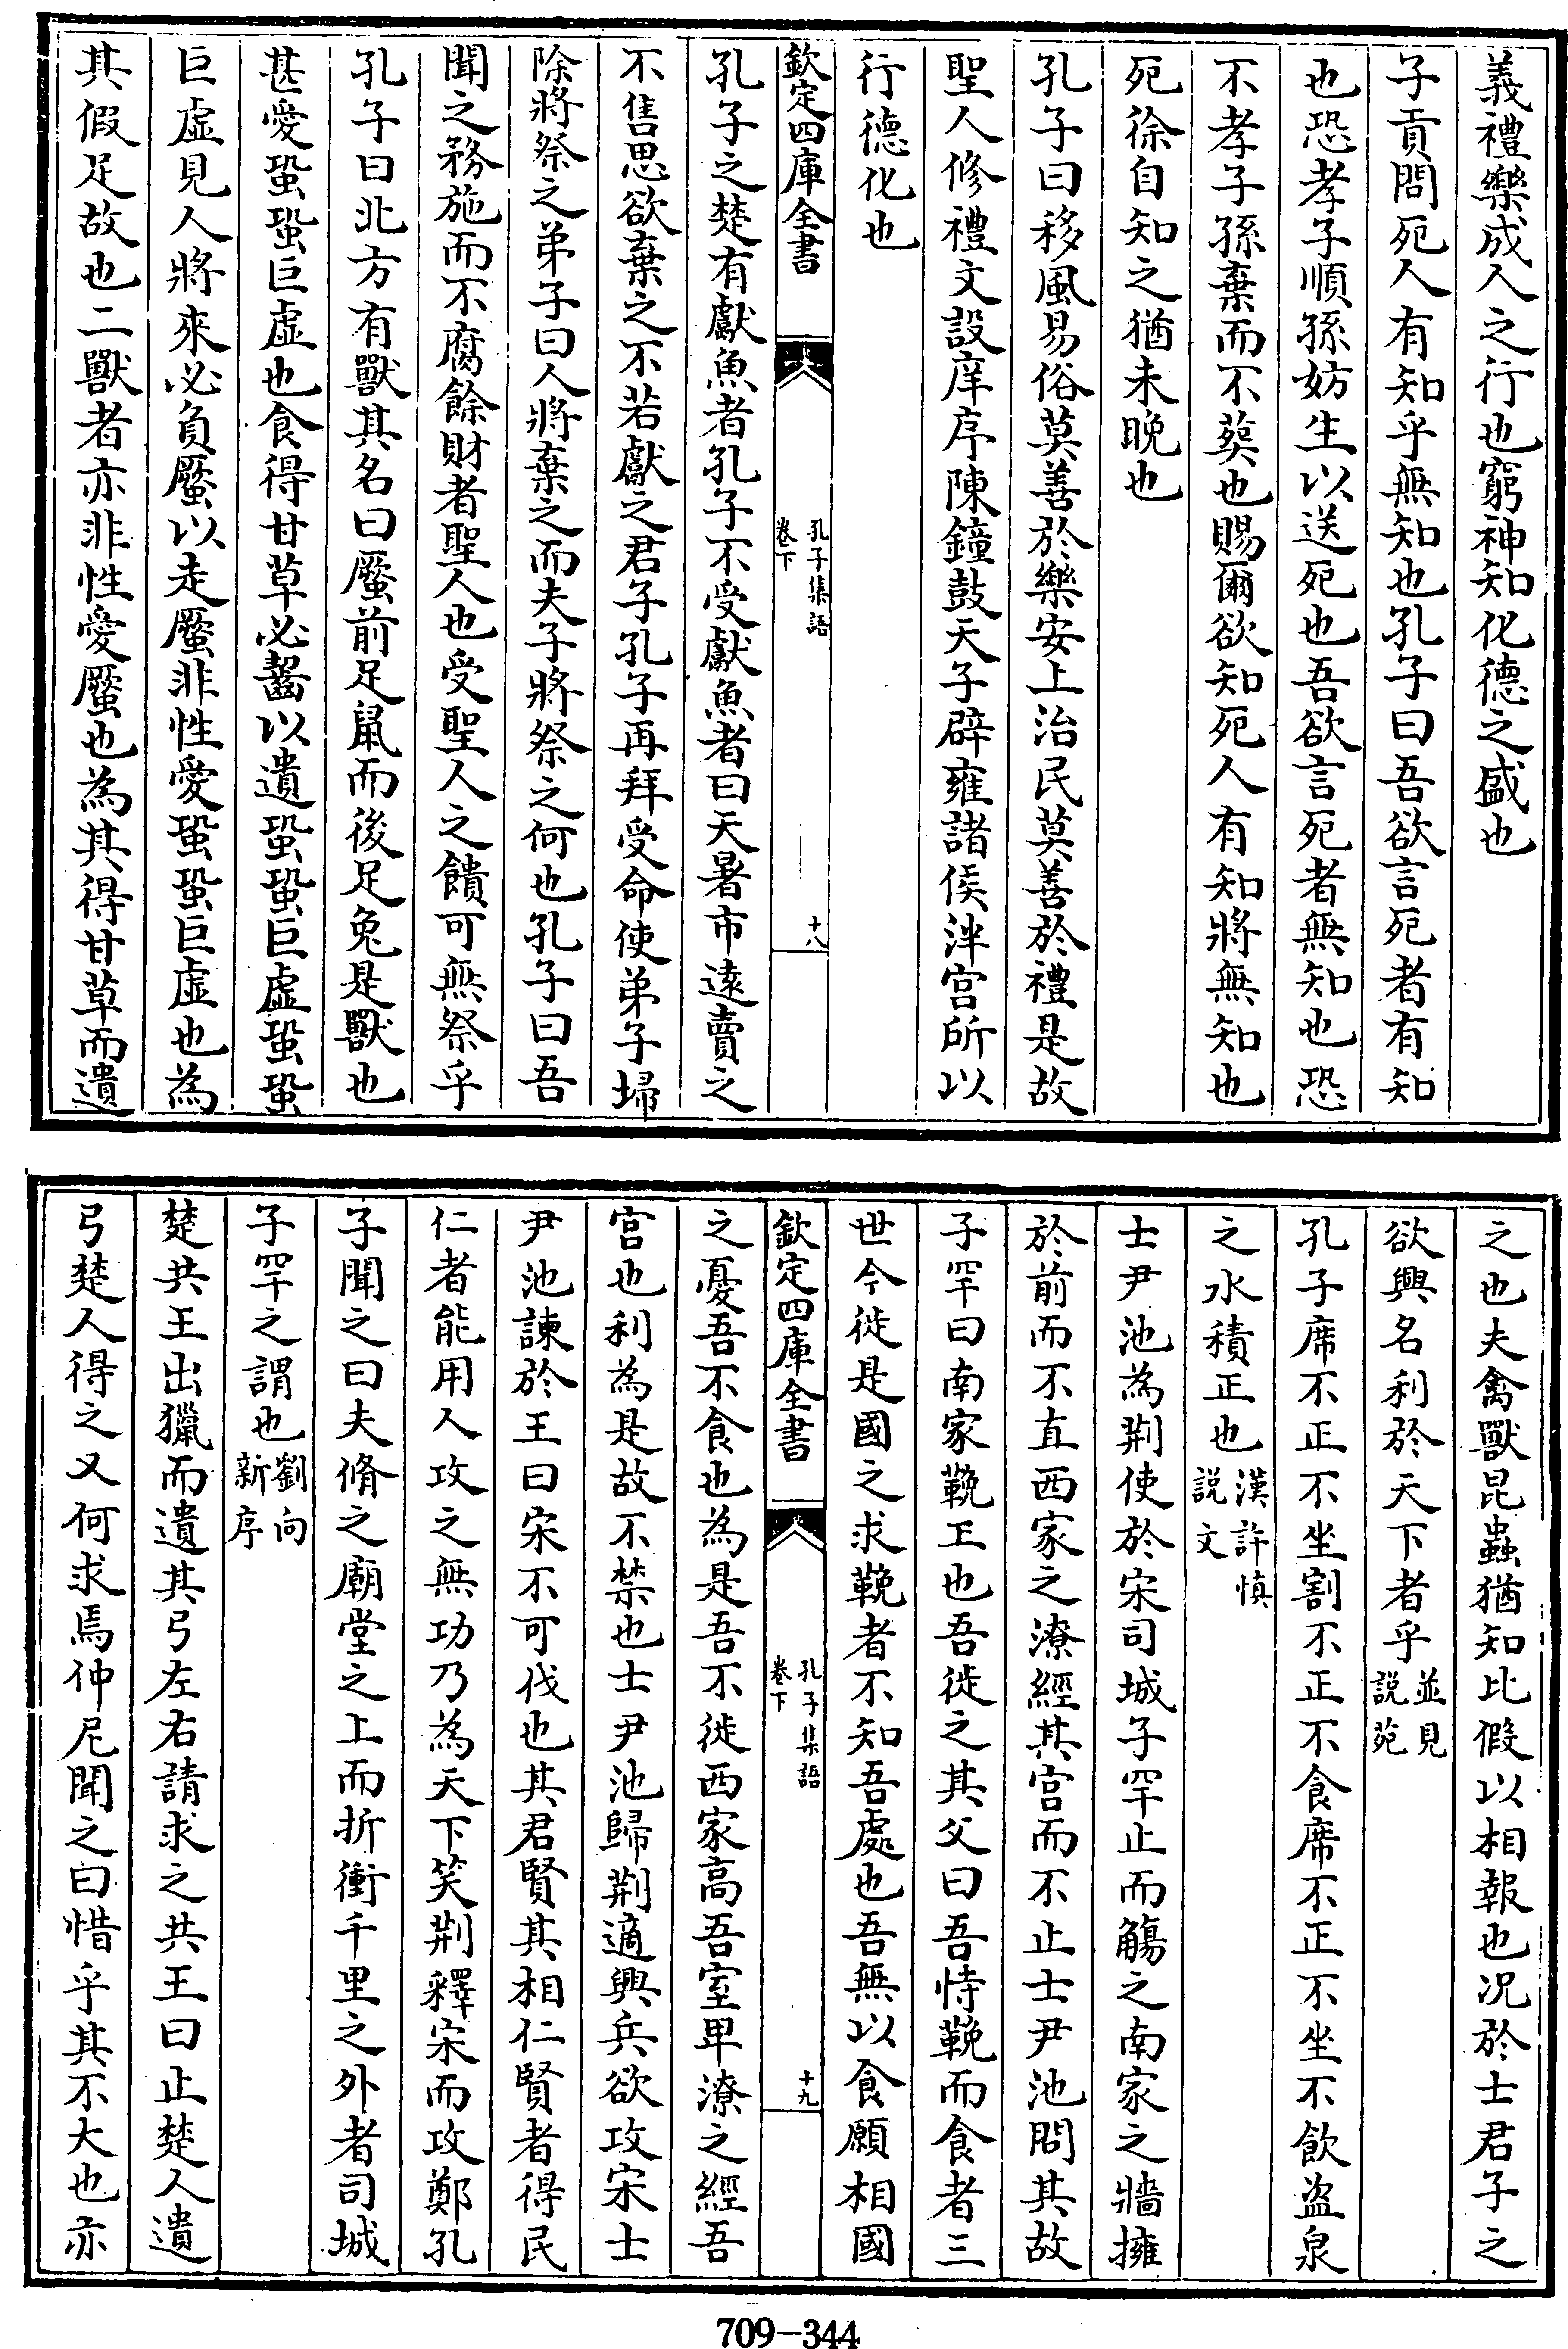 義禮樂成人之行也窮神知化德之盛也
子貢問死人有知乎無知也孔子曰吾欲言死者有知
也恐孝子順孫妨生以送死也吾欲言死者無知也恐
不孝子孫棄而不葬也賜爾欲知死人有知將無知也
死徐自知之猶未晚也
孔子曰移風易俗莫善於樂安上治民莫善於禮是故
聖人修禮文設庠序陳鐘鼓天子辟雍諸侯泮宫所以
行德化也
欽定四庫全書
孔子集語
卷下
十八
孔子之楚有獻魚者孔子不受獻魚者曰天暑市遠賣之
不售思欲棄之不若獻之君子孔子再拜受命使弟子埽
除將祭之弟子曰人將棄之而夫子將祭之何也孔子曰吾
聞之務施而不腐餘財者聖人也受聖人之饋可無祭乎
孔子曰北方有獸其名曰蟨前足鼠而後足兔是獸也
甚愛蛩蛩巨虛也食得甘草必齧以遺蛩蛩巨虛蛩蛩
巨虛見人將來必負蟨以走蟨非性愛蛩蛩巨虛也為
其假足故也二獸者亦非性愛蟨也為其得甘草而遺
之也夫禽獸昆蟲猶知比假以相報也况於士君子之
欲興名利於天下者乎並見
説苑
孔子席不正不坐割不正不食席不正不坐不飲盜泉
之水積正也漢許慎
説文
士尹池為荆使於宋司城子罕止而觴之南家之牆擁
於前而不直西家之潦經其宫而不止士尹池問其故
子罕曰南家鞔工也吾徙之其父曰吾恃鞔而食者三
世今徙是國之求鞔者不知吾處也吾無以食願相國
欽定四庫全書
孔子集語
卷下
十九
之憂吾不食也為是吾不徙西家高吾室卑潦之經吾
宫也利為是故不禁也士尹池歸荆適興兵欲攻宋士
尹池諫於王曰宋不可伐也其君賢其相仁賢者得民
仁者能用人攻之無功乃為天下笑荆釋宋而攻鄭孔
子聞之曰夫脩之廟堂之上而折衝千里之外者司城
子罕之謂也劉向
新序
楚共王出獵而遺其弓左右請求之共王曰止楚人遺
弓楚人得之又何求焉仲尼聞之曰惜乎其不大也亦
709-344